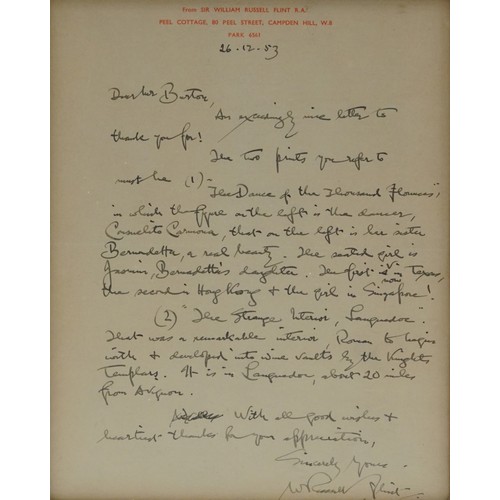 From SIR WILLIAM RUSSELL FLINT R.A.
PEEL COTTAGE, 80 PEEL STREET, CAMPDEN HILL, W.8
PARK 6561
26.12.53
Dear Mr Burton,
An exceedingly nice letter to
thank you for!
The two prints you refer to
must be (1) "
The Dance of the Thousand Flounces",
in which the figure on the left is the dancer,
Consuelito Carmona, that on the left is her sister
Bernadetta, a real beauty. The seated girl is
Jasmin, Bernadetta's daughter. The first is now in Texas,
the second in Hong Kong & the girl in Singapore!
(2) "The Strange Interior, Languedoc".
That was a remarkable interior, Roman to begin
with & developed into wine vaults by the Knights
Templars. It is in Languedoc, about 20 miles
from Avignon.
With all good wishes &
heartiest thanks for your appreciation,
Sincerely Yours
W Russell Flint